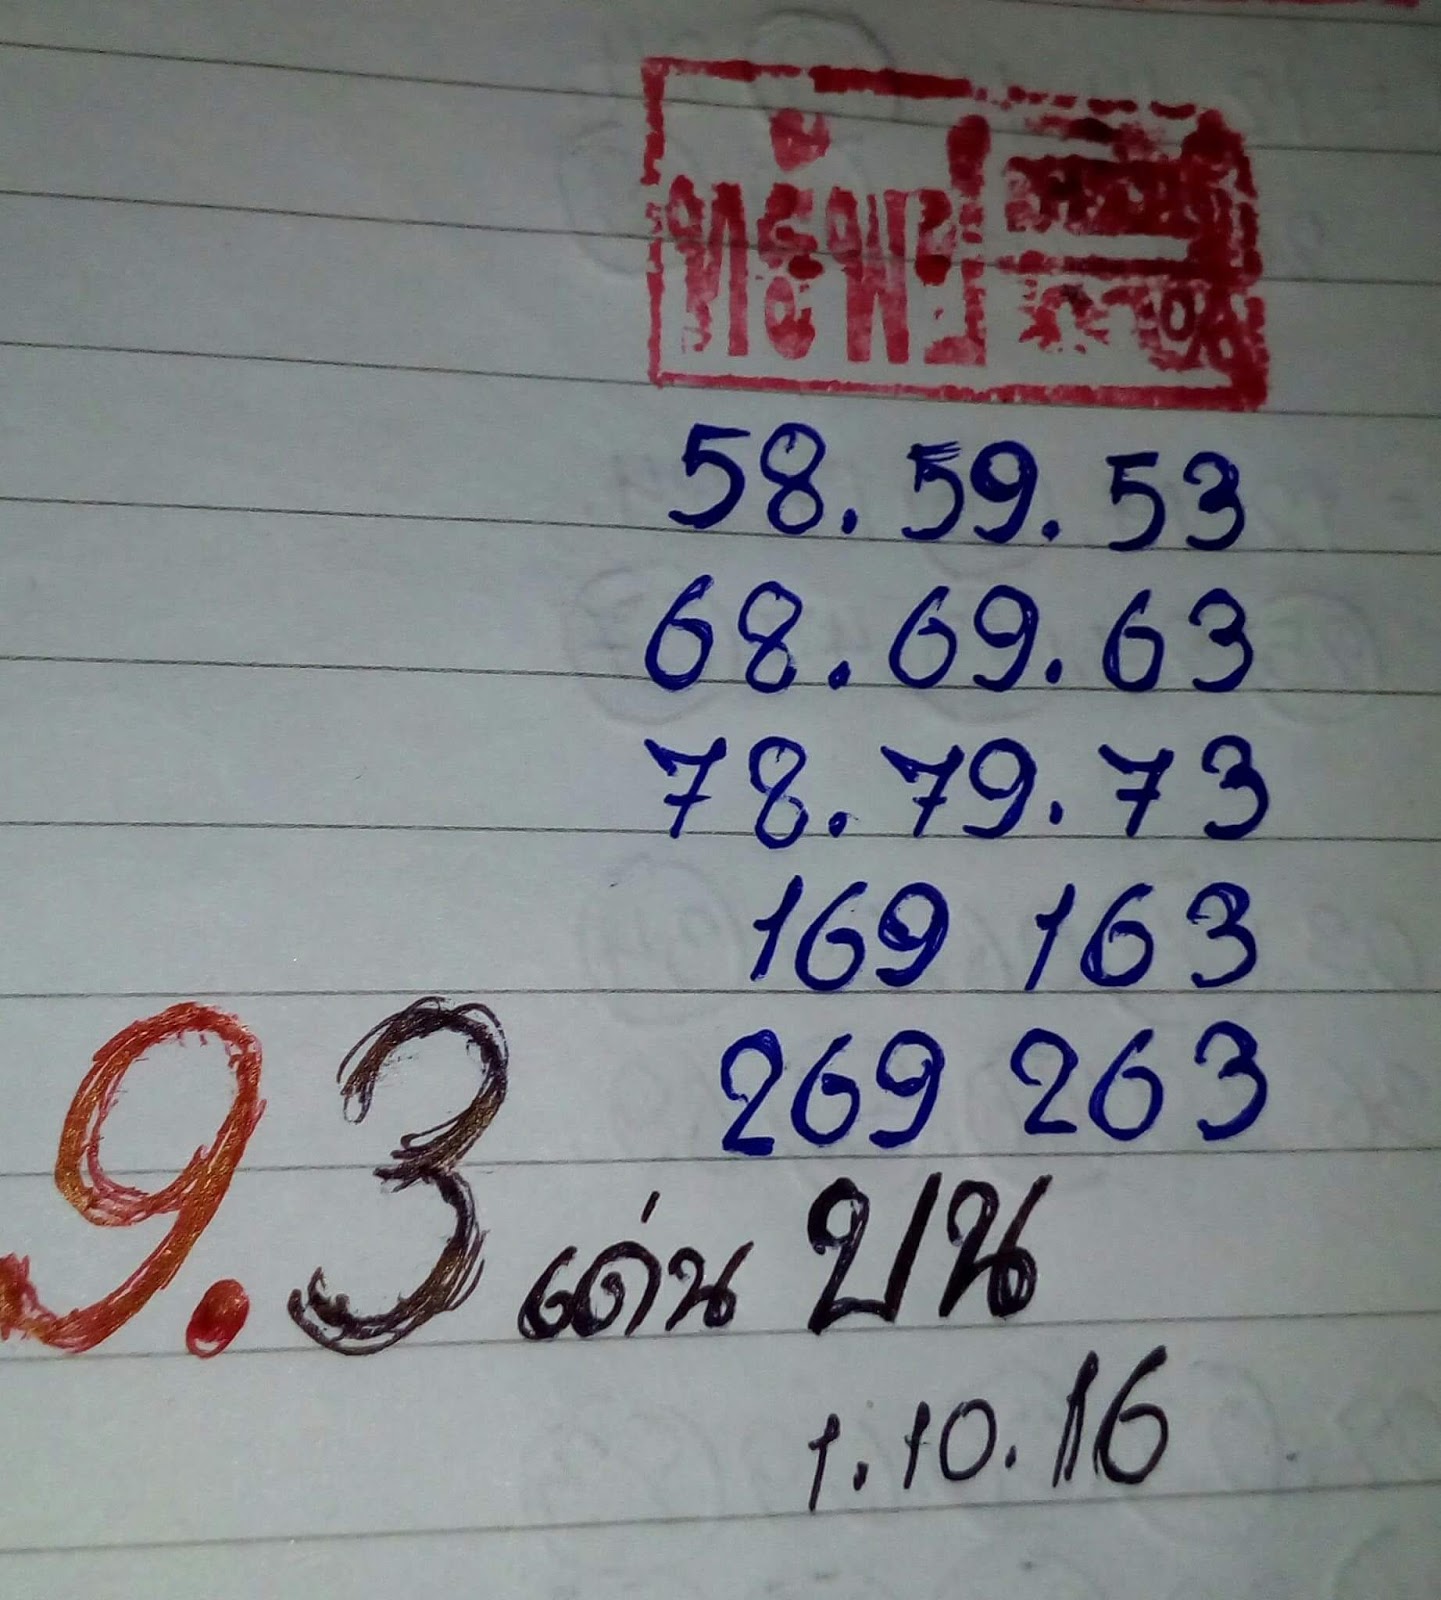 58. 59. 53
68. 69. 63
78. 79. 73
169 163
269 263
9.3 เด่น บน
1.10.16